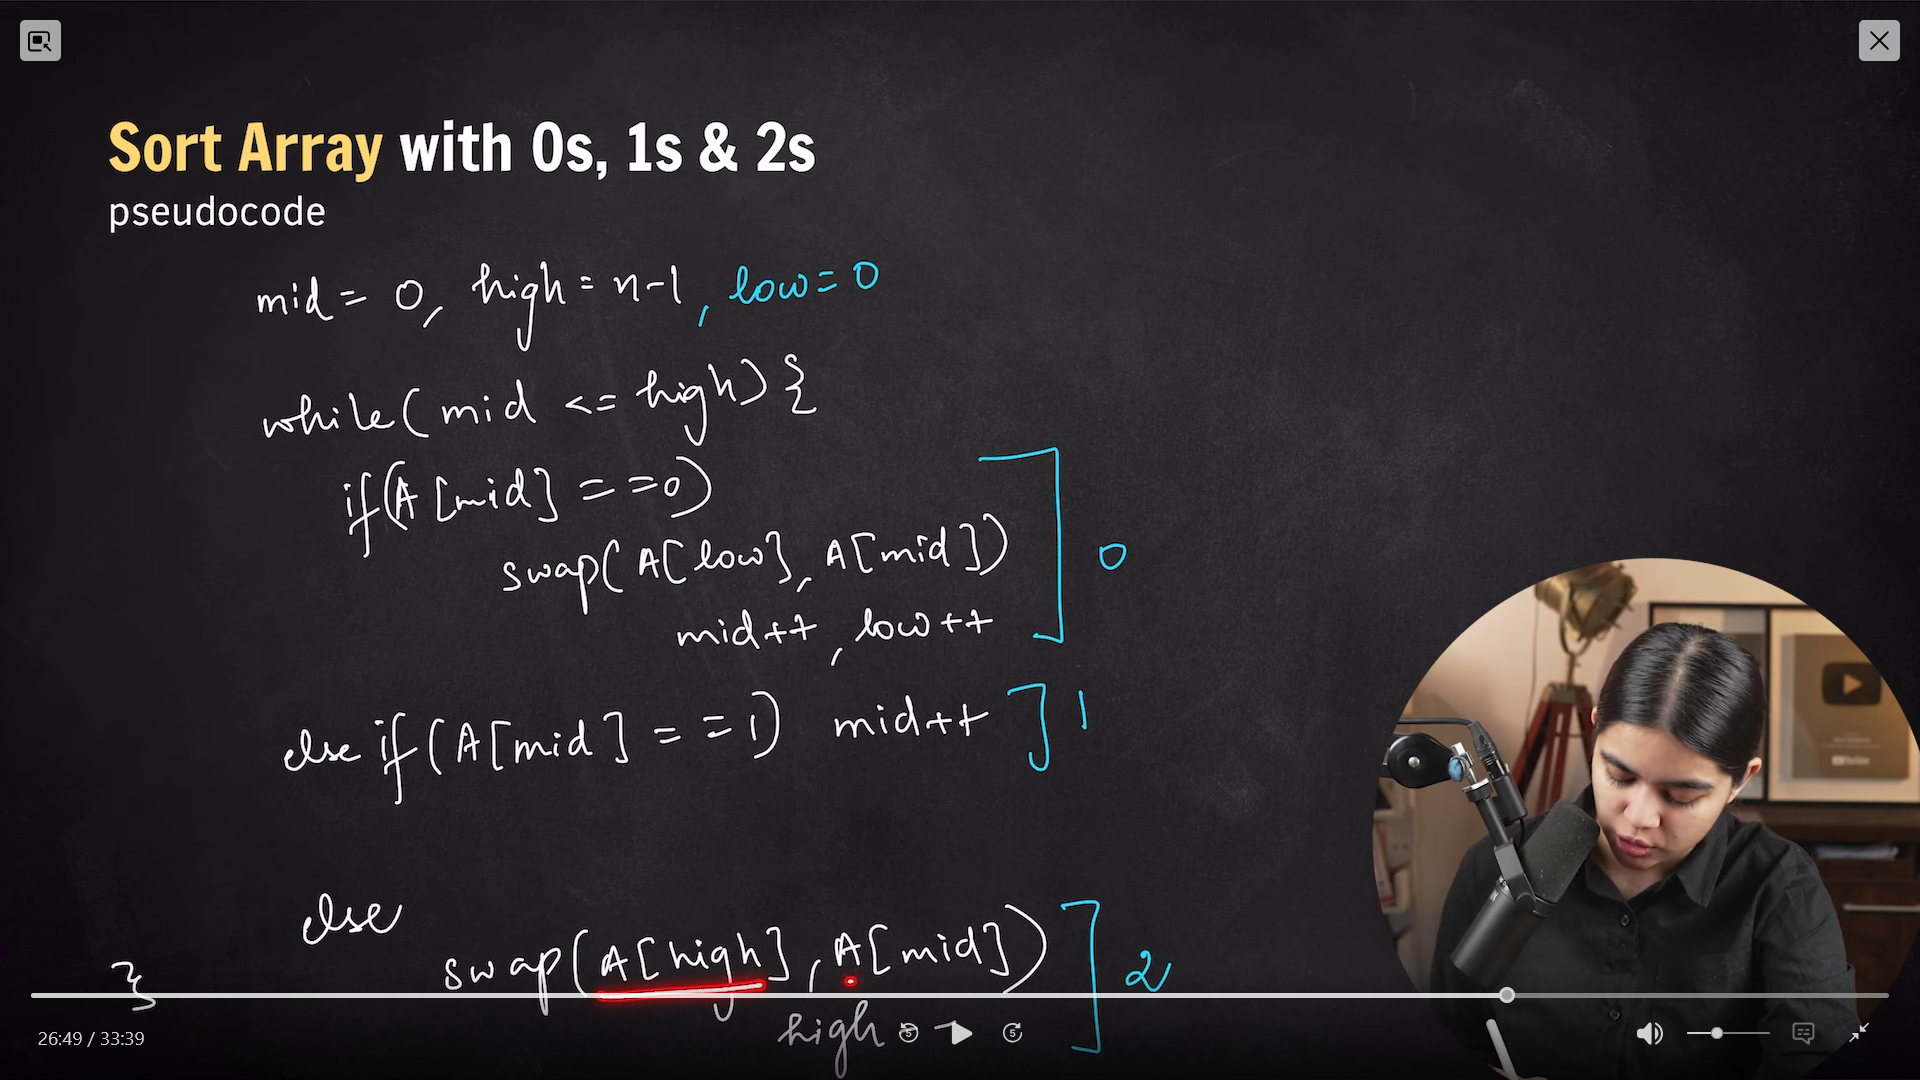 Sort Array with 0s, 1s & 2s
pseudocode
mid = 0, high = n-1, low = 0
while(mid <= high){
if(A[mid] == 0)
swap(A[low], A[mid])
mid++, low++
0
else if(A[mid] == 1) mid++
1
else
swap(A[high], A[mid])
2
}
high
26:49 / 33:39
5
5